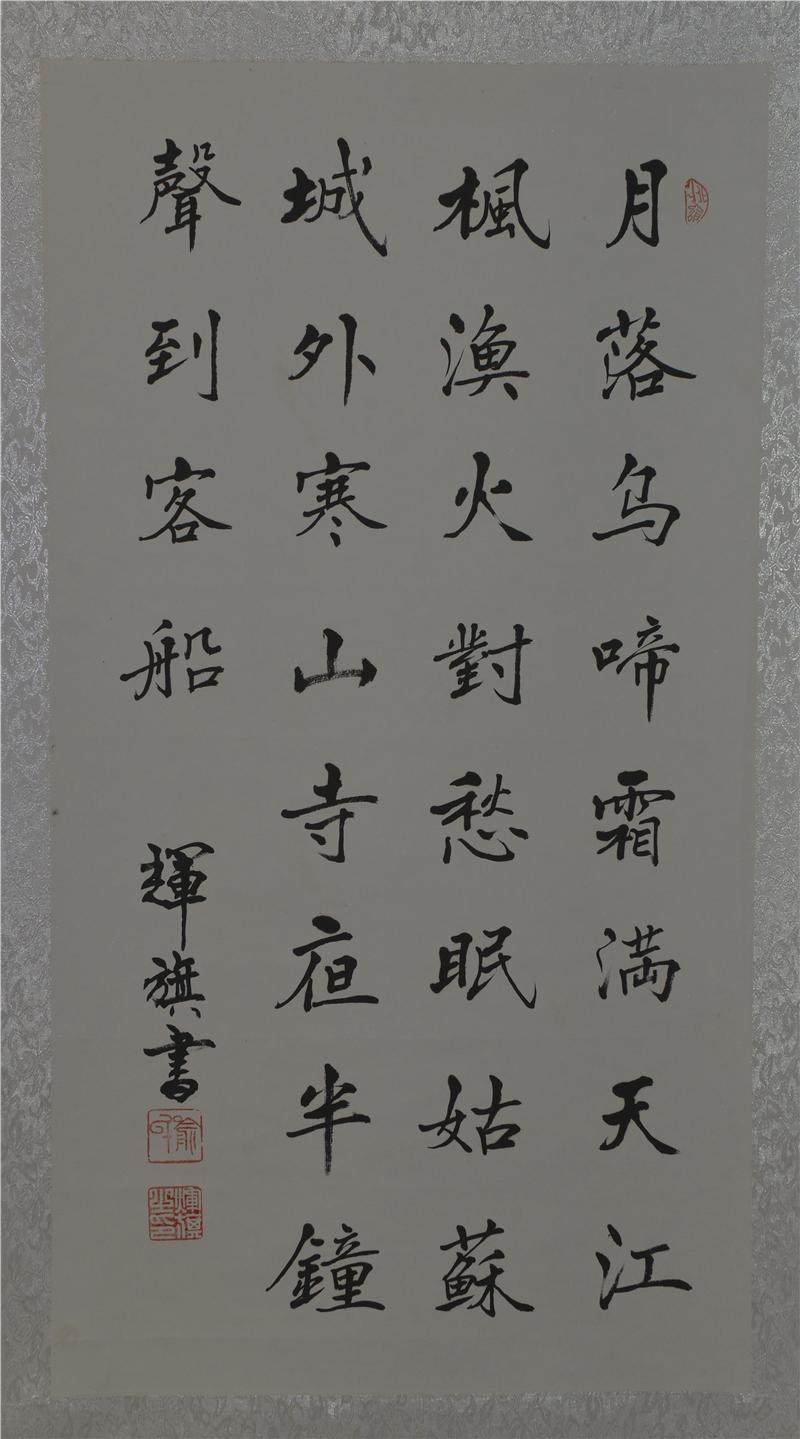 月落烏啼霜満天江
楓漁火對愁眠姑蘇
城外寒山寺夜半鐘
聲到客船
輝旗書